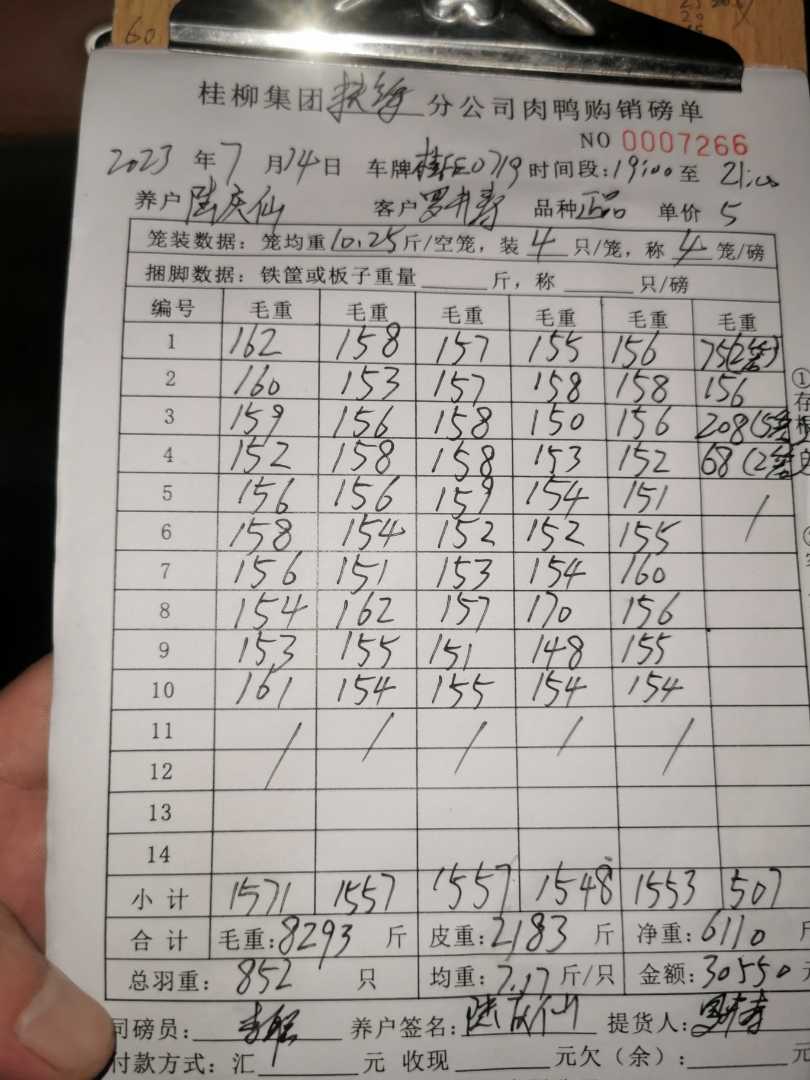 60
桂柳集团扶绥分公司肉鸭购销磅单
NO 0007266
2023年7月24日 车牌 0719 时间段:19:00至21:00
养户 陆庆仙 客户 品种 正品 单价 5
笼装数据:笼均重10.25斤/空笼,装4只/笼,称4笼/磅
捆脚数据:铁筐或板子重量 斤,称 只/磅
编号 毛重 毛重 毛重 毛重 毛重 毛重
1 162 158 157 155 156 75(2笼)
2 160 153 157 158 158 156
3 159 156 158 150 156 208(5笼
4 152 158 158 153 152 68(2笼
5 156 156 159 154 151 /
6 158 154 152 152 155
7 156 151 153 154 160
8 154 162 157 170 156
9 153 155 151 148 155
10 161 154 155 154 154
11 / / / / /
12
13
14
小计 1571 1557 1557 1548 1553 507
合计 毛重:8293斤 皮重:2183斤 净重:6110斤
总羽重:852只 均重:7.17斤/只 金额:30550元
司磅员: 养户签名:陆庆仙 提货人:
付款方式:汇 元 收现 元欠(余): 元